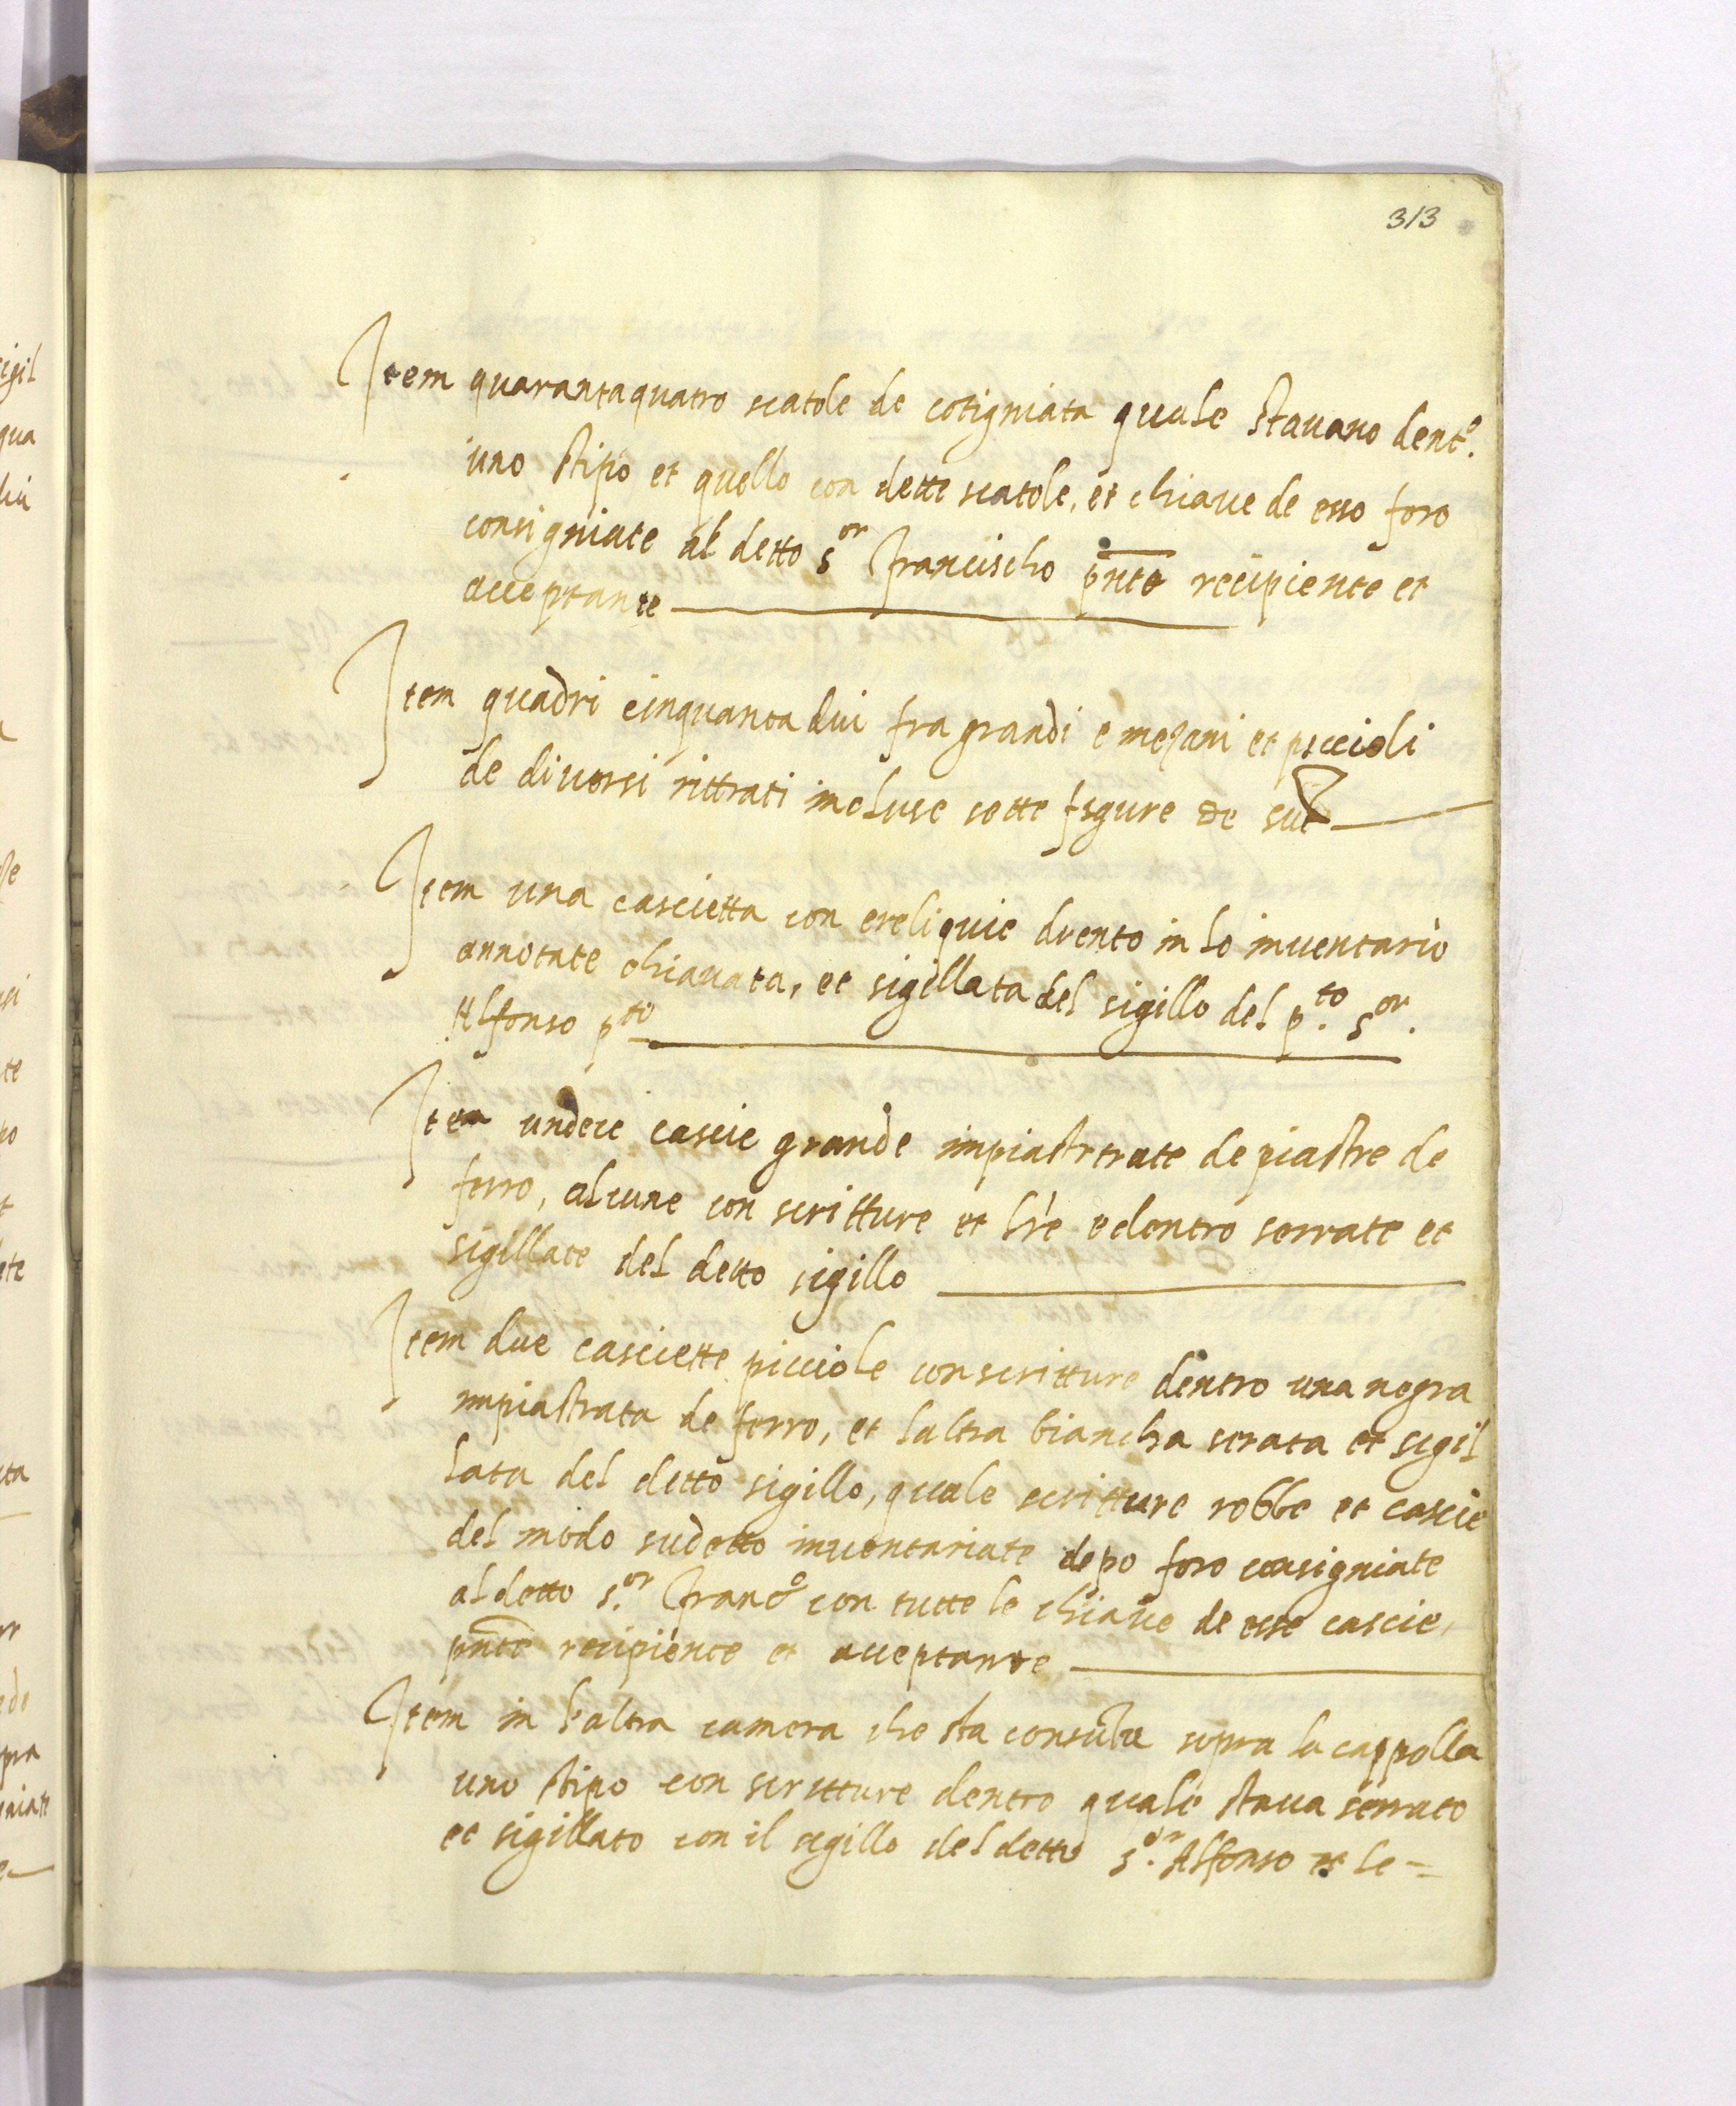 313
Item quarantaquatro scatole de cotigniata quale stavano dent.o
uno stipo et quello con dette scatole, et chiave de esso foro
consigniate al detto s.or Francischo pnte recipiente et
acceptante
Item quadri cinquanta dui fra grandi e mezani et piccioli
de diversi rittrati incluse sette figure de
Item una casciетta con ereliquie drento in lo inventario
annotate chiavata, et sigillata del sigillo del p.to s.or
Alfonso p.to
Item undece cascie grande impiastrate de piastre de
ferro, alcune con scritture et lre dentro serrate et
sigillate del detto sigillo
Item due casciette picciole con scritture dentro una negra
impiastrata de ferro, et laltra biancha serata et sigil
lata del detto sigillo, quale scritture robbe et cascie
del modo sudetto inventariate depo foro consigniate
al detto s.or Franc.o con tutte le chiave de esse cascie,
pnte recipiente et acceptante
Item in l'altra camera che sta sopra la cappella
uno stipo con scritture dentro quale stava serrato
et sigillato con il sigillo del detto s.or Alfonso et le=